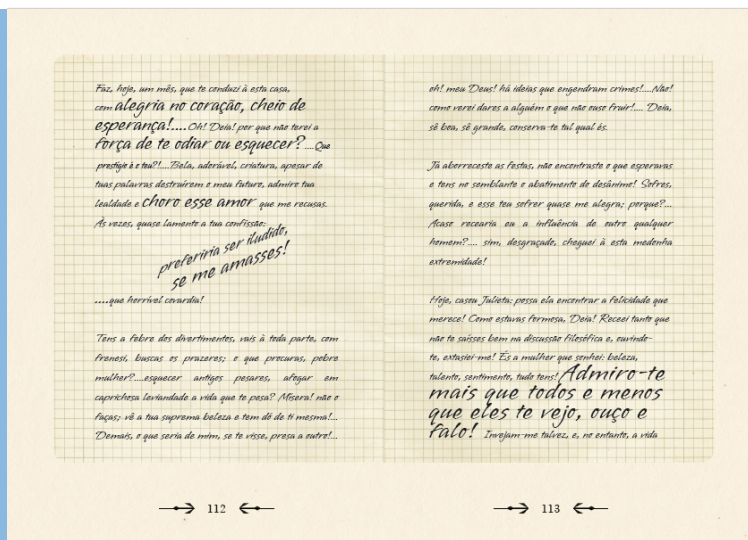 Faz, hoje, um mês, que te conduzi à esta casa,
com alegria no coração, cheio de
esperança!.... Oh! Deia! por que não terei a
força de te odiar ou esquecer? ....Que
prestígio é o teu?!... Bela, adorável, criatura, apesar de
tuas palavras destruirem o meu futuro, admiro tua
lealdade e choro esse amor que me recusas.
Às vezes, quase lamento a tua confissão:
preferiria ser iludido,
se me amasses!
....que horrível covardia!
Tens a febre dos divertimentos, vais à toda parte, com
frenesi, buscas os prazeres; o que procuras, pobre
mulher?....esquecer antigos pesares, afogar em
caprichosa leviandade a vida que te pesa? Mísera! não o
faças; vê a tua suprema beleza e tem dó de ti mesma!...
Demais, o que seria de mim, se te visse, presa a outro!...
112
oh! meu Deus! há ideias que engendram crimes!....Não!
como verei dares a alguém o que não ouso fruir!.... Deia,
sê boa, sê grande, conserva-te tal qual és.
Já aborreceste as festas, não encontraste o que esperavas
e tens no semblante o abatimento do desânimo! Sofres,
querida, e esse teu sofrer quase me alegra; porque?...
Acaso recearia eu a influência de outro qualquer
homem?.... sim, desgraçado, cheguei à esta medonha
extremidade!
Hoje, casou Julieta; possa ela encontrar a felicidade que
merece! Como estavas formosa, Deia! Receei tanto que
não te saísses bem na discussão filosófica e, ouvindo-
te, extasiei-me! És a mulher que sonhei: beleza,
talento, sentimento, tudo tens! Admiro-te
mais que todos e menos
que eles te vejo, ouço e
falo! Invejam-me talvez, e, no entanto, a vida
113